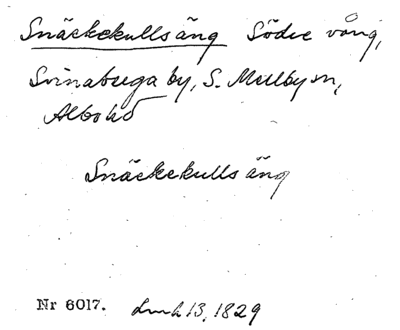 Snäckekullsäng Södre vång,
Svinaberga by, S. Mellby sn,
Albo hd
Snäckekullsäng
Nr 6017. 13, 1829